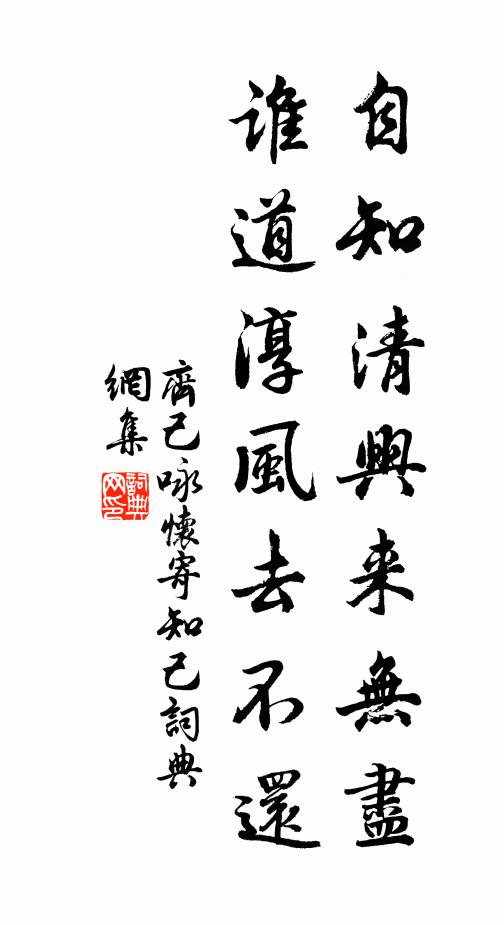 自知清興来無盡
誰道淳風去不還
齊己咏懷寄知己詞典
網集
詞典网印